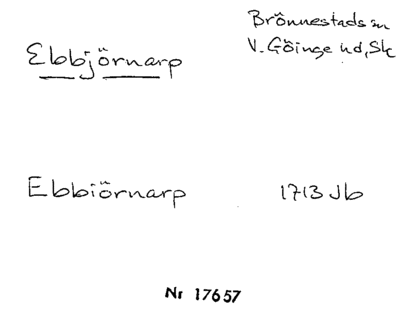 Ebbjörnarp
Brönnestads sn
V. Göinge hd, Sk
Ebbiörnarp 1713 Jb
Nr 17657